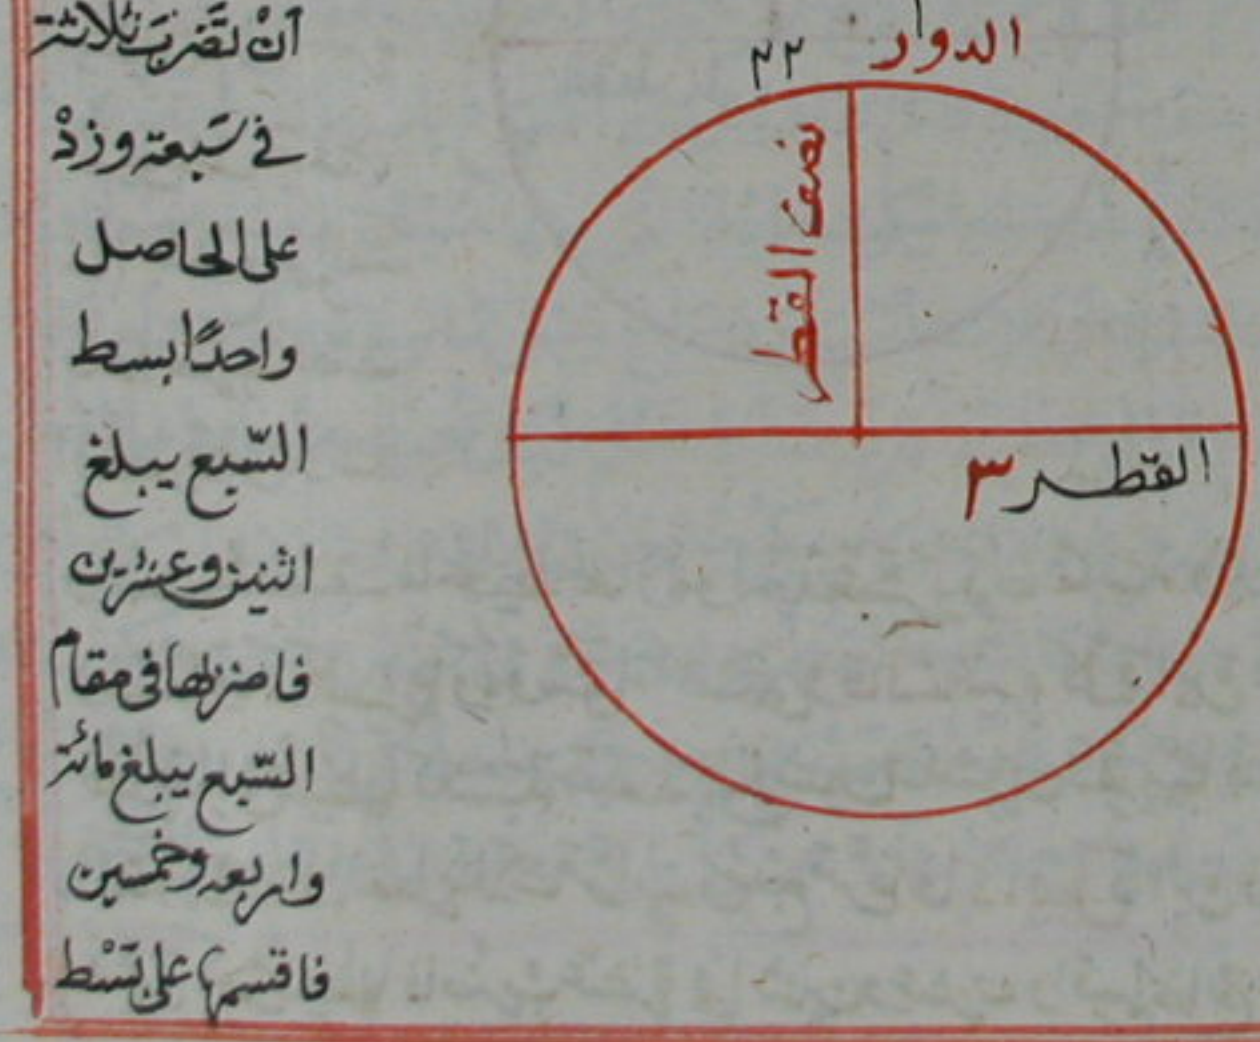 الدوار ٢٢
نصف القطر
القطر ٣
آنْ تَضربَ ثلاثة
في سَبعة وزدْ
على الحاصل
واحدًا بسط
السّبع يبلغ
اثنين وعشرين
فاضربها في مقام
السّبع يبلغ مائة
واربعه وخمسين
فاقسمها على بَسْط